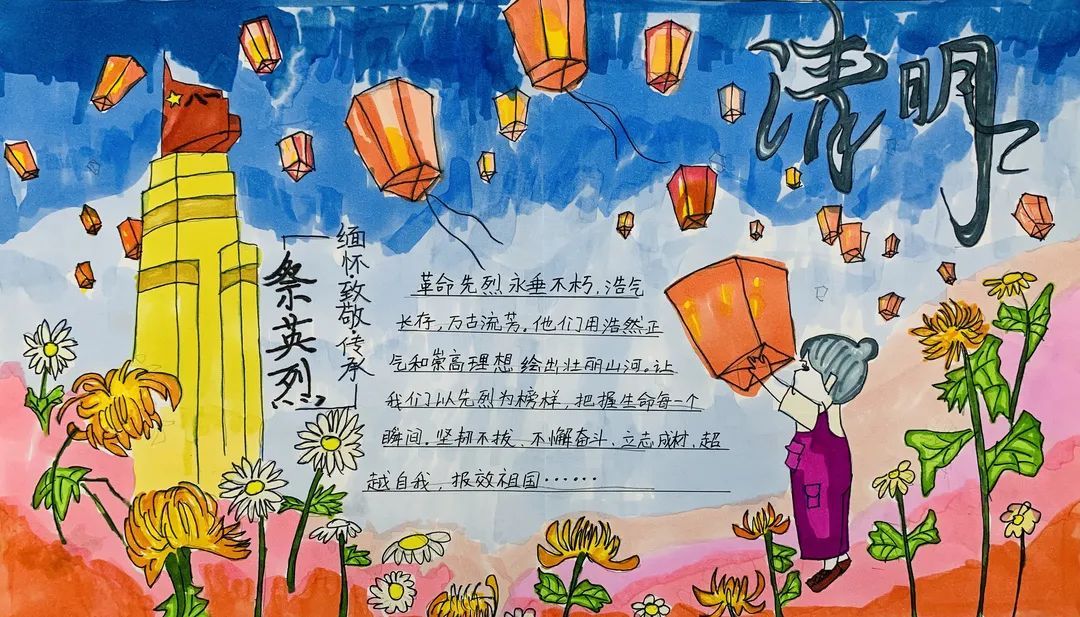 清明
八一
缅怀·致敬·传承
「祭英烈」
革命先烈永垂不朽，浩气
长存，万古流芳。他们用浩然正
气和崇高理想绘出壮丽山河。让
我们以先烈为榜样，把握生命每一个
瞬间。坚韧不拔、不懈奋斗、立志成材、超
越自我，报效祖国……